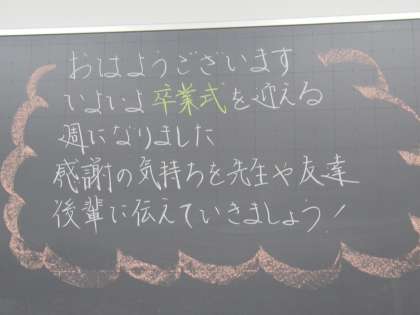 おはようございます
いよいよ卒業式を迎える
週になりました
感謝の気持ちを先生や友達
後輩に伝えていきましょう！